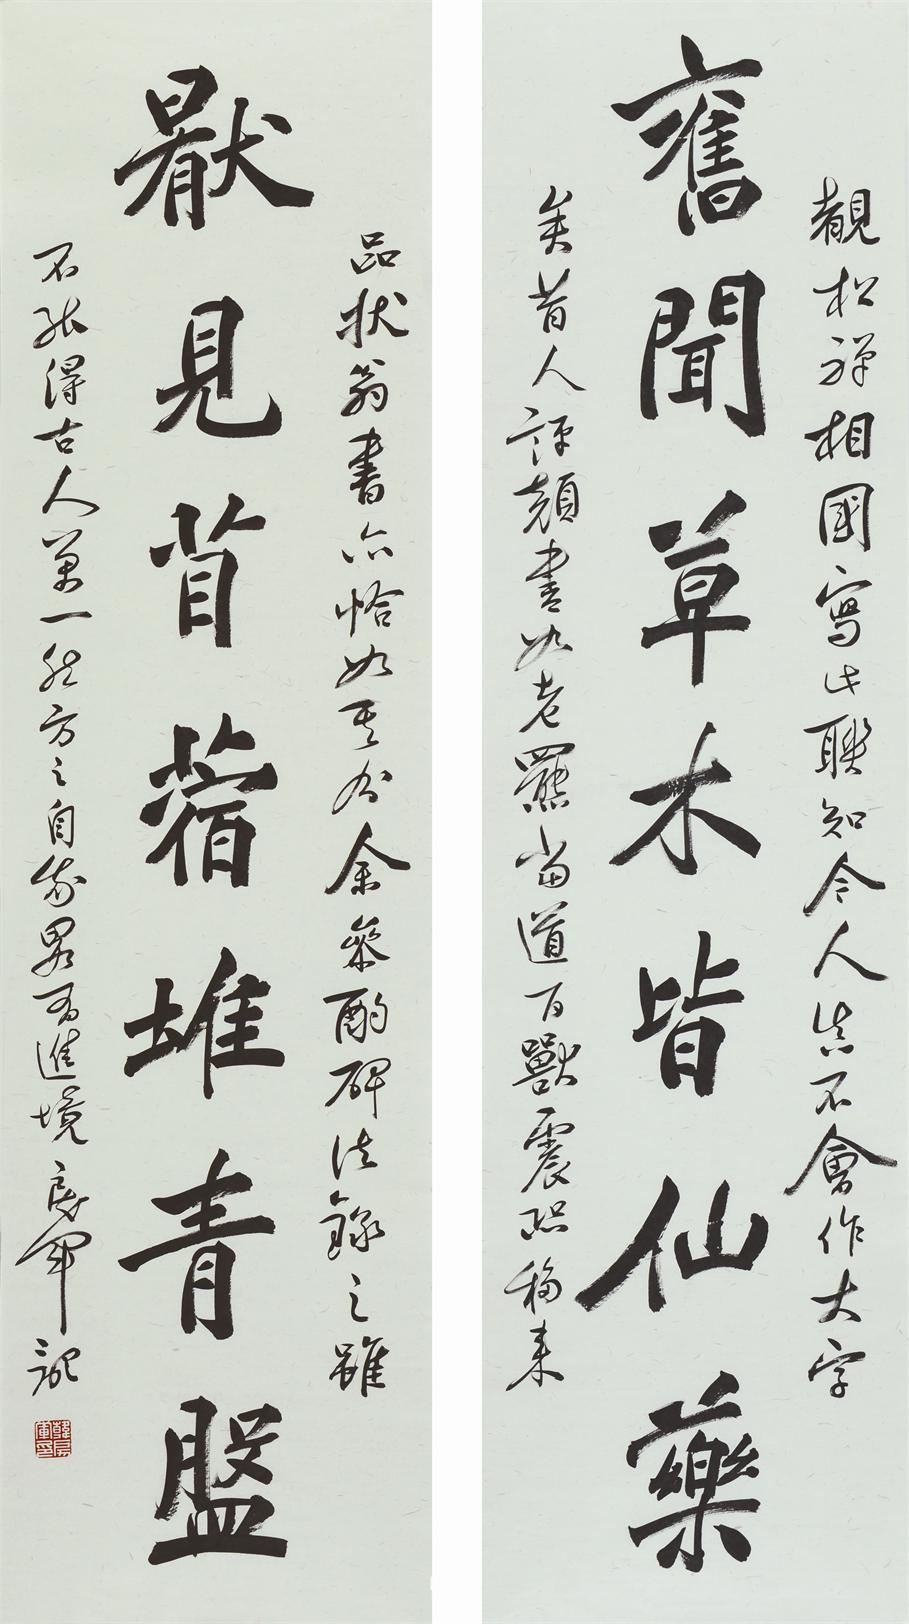 舊聞草木皆仙藥
觀松禪相國寫此聯知令人真不會作大字
矣昔人評顏書如老羆當道百獸震恐移來
厭見苜蓿堆青盤
品狀翁書亦恰如其分余參酌碑法錄之雖
不能得古人萬一然方之自我略有進境 晨軍記